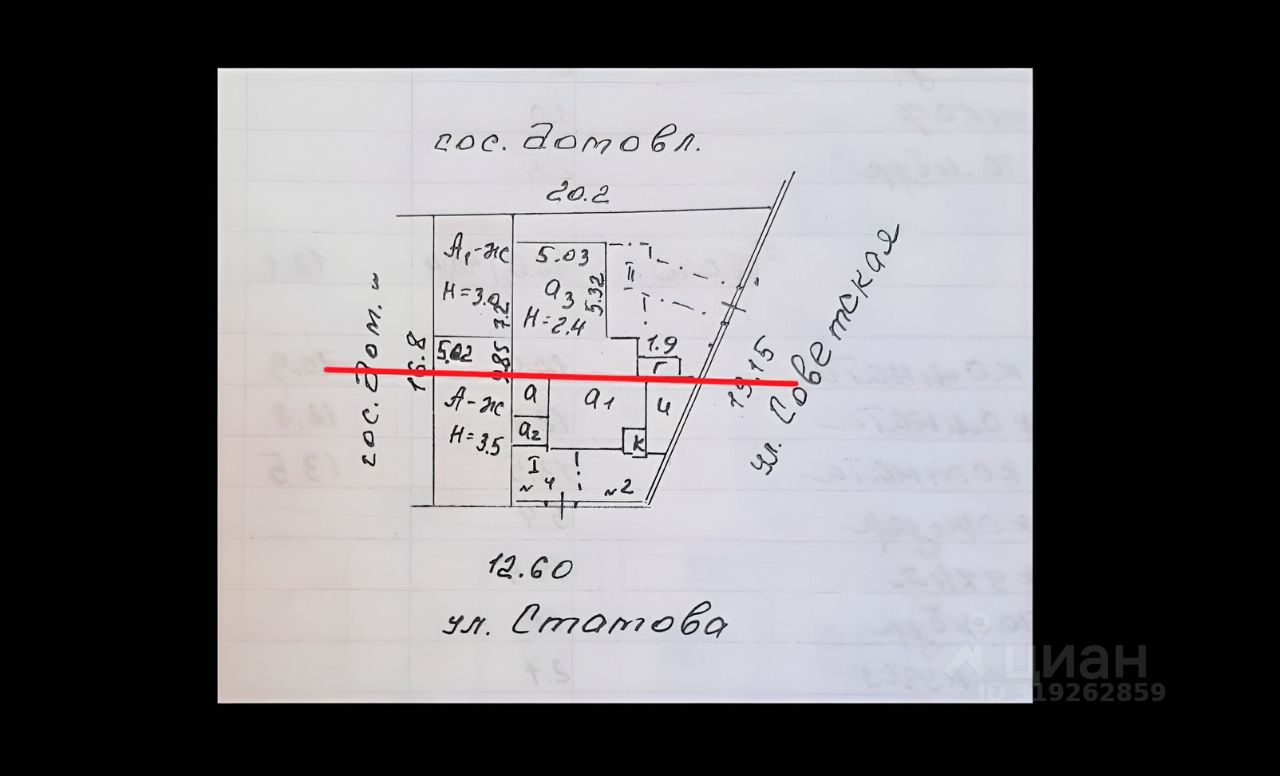 сос. домовл.
20.2
А₁-жс
Н=3.0
7.2
5.03
а₃
Н=2.4
5.32
II
I
1.9
Г
5.02
9.85
16.8
сос. дом. "
А-жс
Н=3.5
а
а₁
а₂
ч
К
I
N 4
N 2
19.15
ул. Советская
12.60
ул. Статова
циан
ID 319262859